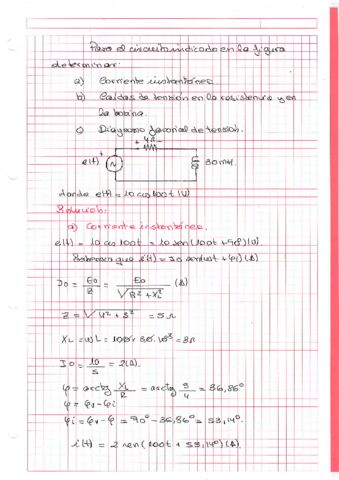 Para el circuito indicado en la figura
determinar:
a) Corriente instantánea
b) Caídas de tensión en la resistencia y en
la bobina.
c) Diagrama fasorial de tensión.
+ 4Ω -
e(t) + 30mH.
donde e(t) = 10 cos 100t (V)
Solución:
a) Corriente instantánea.
e(t) = 10 cos 100t = 10 sen (100t + 90º) (V)
Sabemos que i(t) = Io sen(ωt + φi) (A)
Io = Eo / Z = Eo / √(R² + XL²) (A)
Z = √(4² + 3²) = 5Ω
XL = ωL = 100 · 30 · 10⁻³ = 3Ω
Io = 10 / 5 = 2(A).
φ = arctg XL / R = arctg 3 / 4 = 36,86º
φ = φv - φi
φi = φv - φ = 90º - 36,86º = 53,14º.
i(t) = 2 sen (100t + 53,14º) (A).